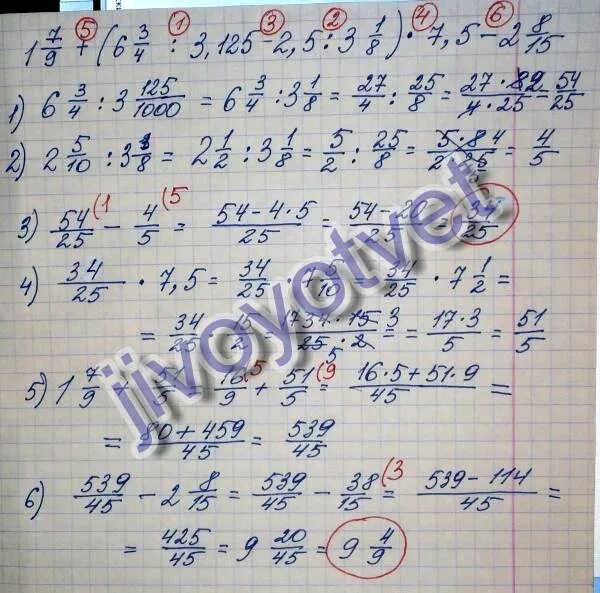 1 7/9 + (6 3/4 : 3,125 - 2,5 : 3 1/8) · 7,5 - 2 8/15
5 1 3 2 4 6
1) 6 3/4 : 3 125/1000 = 6 3/4 : 3 1/8 = 27/4 : 25/8 = 27·8 2/4·25 = 54/25
2) 2 5/10 : 3 1/8 = 2 1/2 : 3 1/8 = 5/2 : 25/8 = 5·8 4/2·25 5 = 4/5
3) 54/25 (1 - 4/5 (5 = 54-4·5/25 = 54-20/25 = 34/25
4) 34/25 · 7,5 = 34/25 · 7 5/10 = 34/25 · 7 1/2 =
= 34/25 · 15/2 = 17 34·15 3/25·2 5 = 17·3/5 = 51/5
5) 1 7/9 + 51/5 = 16/9 (5 + 51/5 (9 = 16·5+51·9/45 =
= 80+459/45 = 539/45
6) 539/45 - 2 8/15 = 539/45 - 38/15 (3 = 539-114/45 =
= 425/45 = 9 20/45 = 9 4/9
jivoyotvet